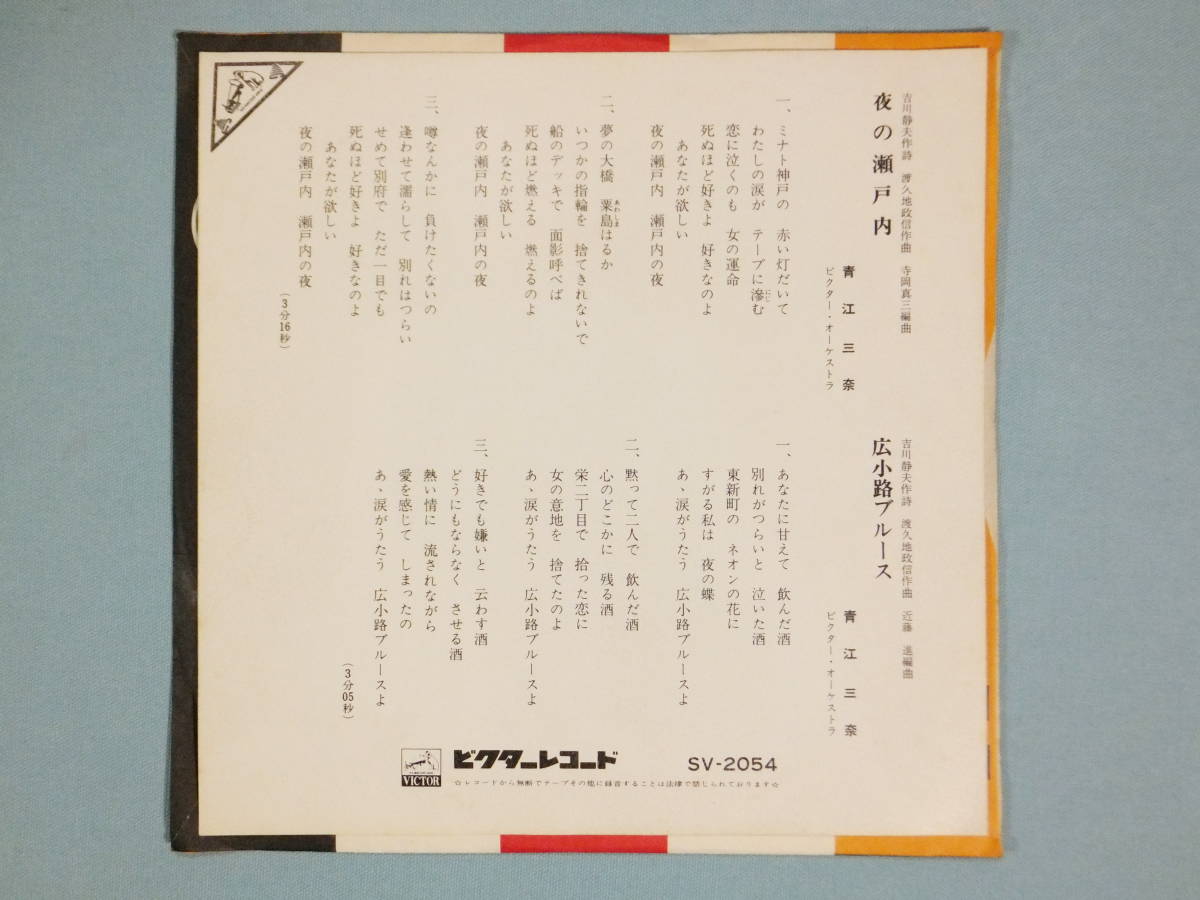 夜の瀬戸内
吉川静夫作詩 渡久地政信作曲 寺岡真三編曲
青江三奈
ビクター・オーケストラ
一、ミナト神戸の 赤い灯だいて
わたしの涙が テープに滲む
にじ
恋に泣くのも 女の運命
死ぬほど好きよ 好きなのよ
あなたが欲しい
夜の瀬戸内 瀬戸内の夜
二、夢の大橋 粟島はるか
あわしま
いつかの指輪を 捨てきれないで
船のデッキで 面影呼べば
死ぬほど燃える 燃えるのよ
あなたが欲しい
夜の瀬戸内 瀬戸内の夜
三、噂なんかに 負けたくないの
逢わせて濡らして 別れはつらい
せめて別府で ただ一目でも
死ぬほど好きよ 好きなのよ
あなたが欲しい
夜の瀬戸内 瀬戸内の夜
(3分16秒)
広小路ブルース
吉川静夫作詩 渡久地政信作曲 近藤 進編曲
青江三奈
ビクター・オーケストラ
一、あなたに甘えて 飲んだ酒
別れがつらいと 泣いた酒
東新町の ネオンの花に
すがる私は 夜の蝶
あゝ涙がうたう 広小路ブルースよ
二、黙って二人で 飲んだ酒
心のどこかに 残る酒
栄二丁目で 拾った恋に
女の意地を 捨てたのよ
あゝ涙がうたう 広小路ブルースよ
三、好きでも嫌いと 云わす酒
どうにもならなく させる酒
熱い情に 流されながら
愛を感じて しまったの
あゝ涙がうたう 広小路ブルースよ
(3分05秒)
VICTOR
ビクターレコード
SV-2054
☆レコードから無断でテープその他に録音することは法律で禁じられております☆